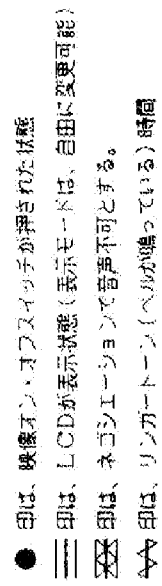 ● 印は、映像オン・オフスイッチが押された状態
印は、LCDが表示状態(表示モードは、自由に変更可能)
印は、ネゴシエーションで音声不可とする。
印は、リンガートーン(ベルが鳴っている)時間